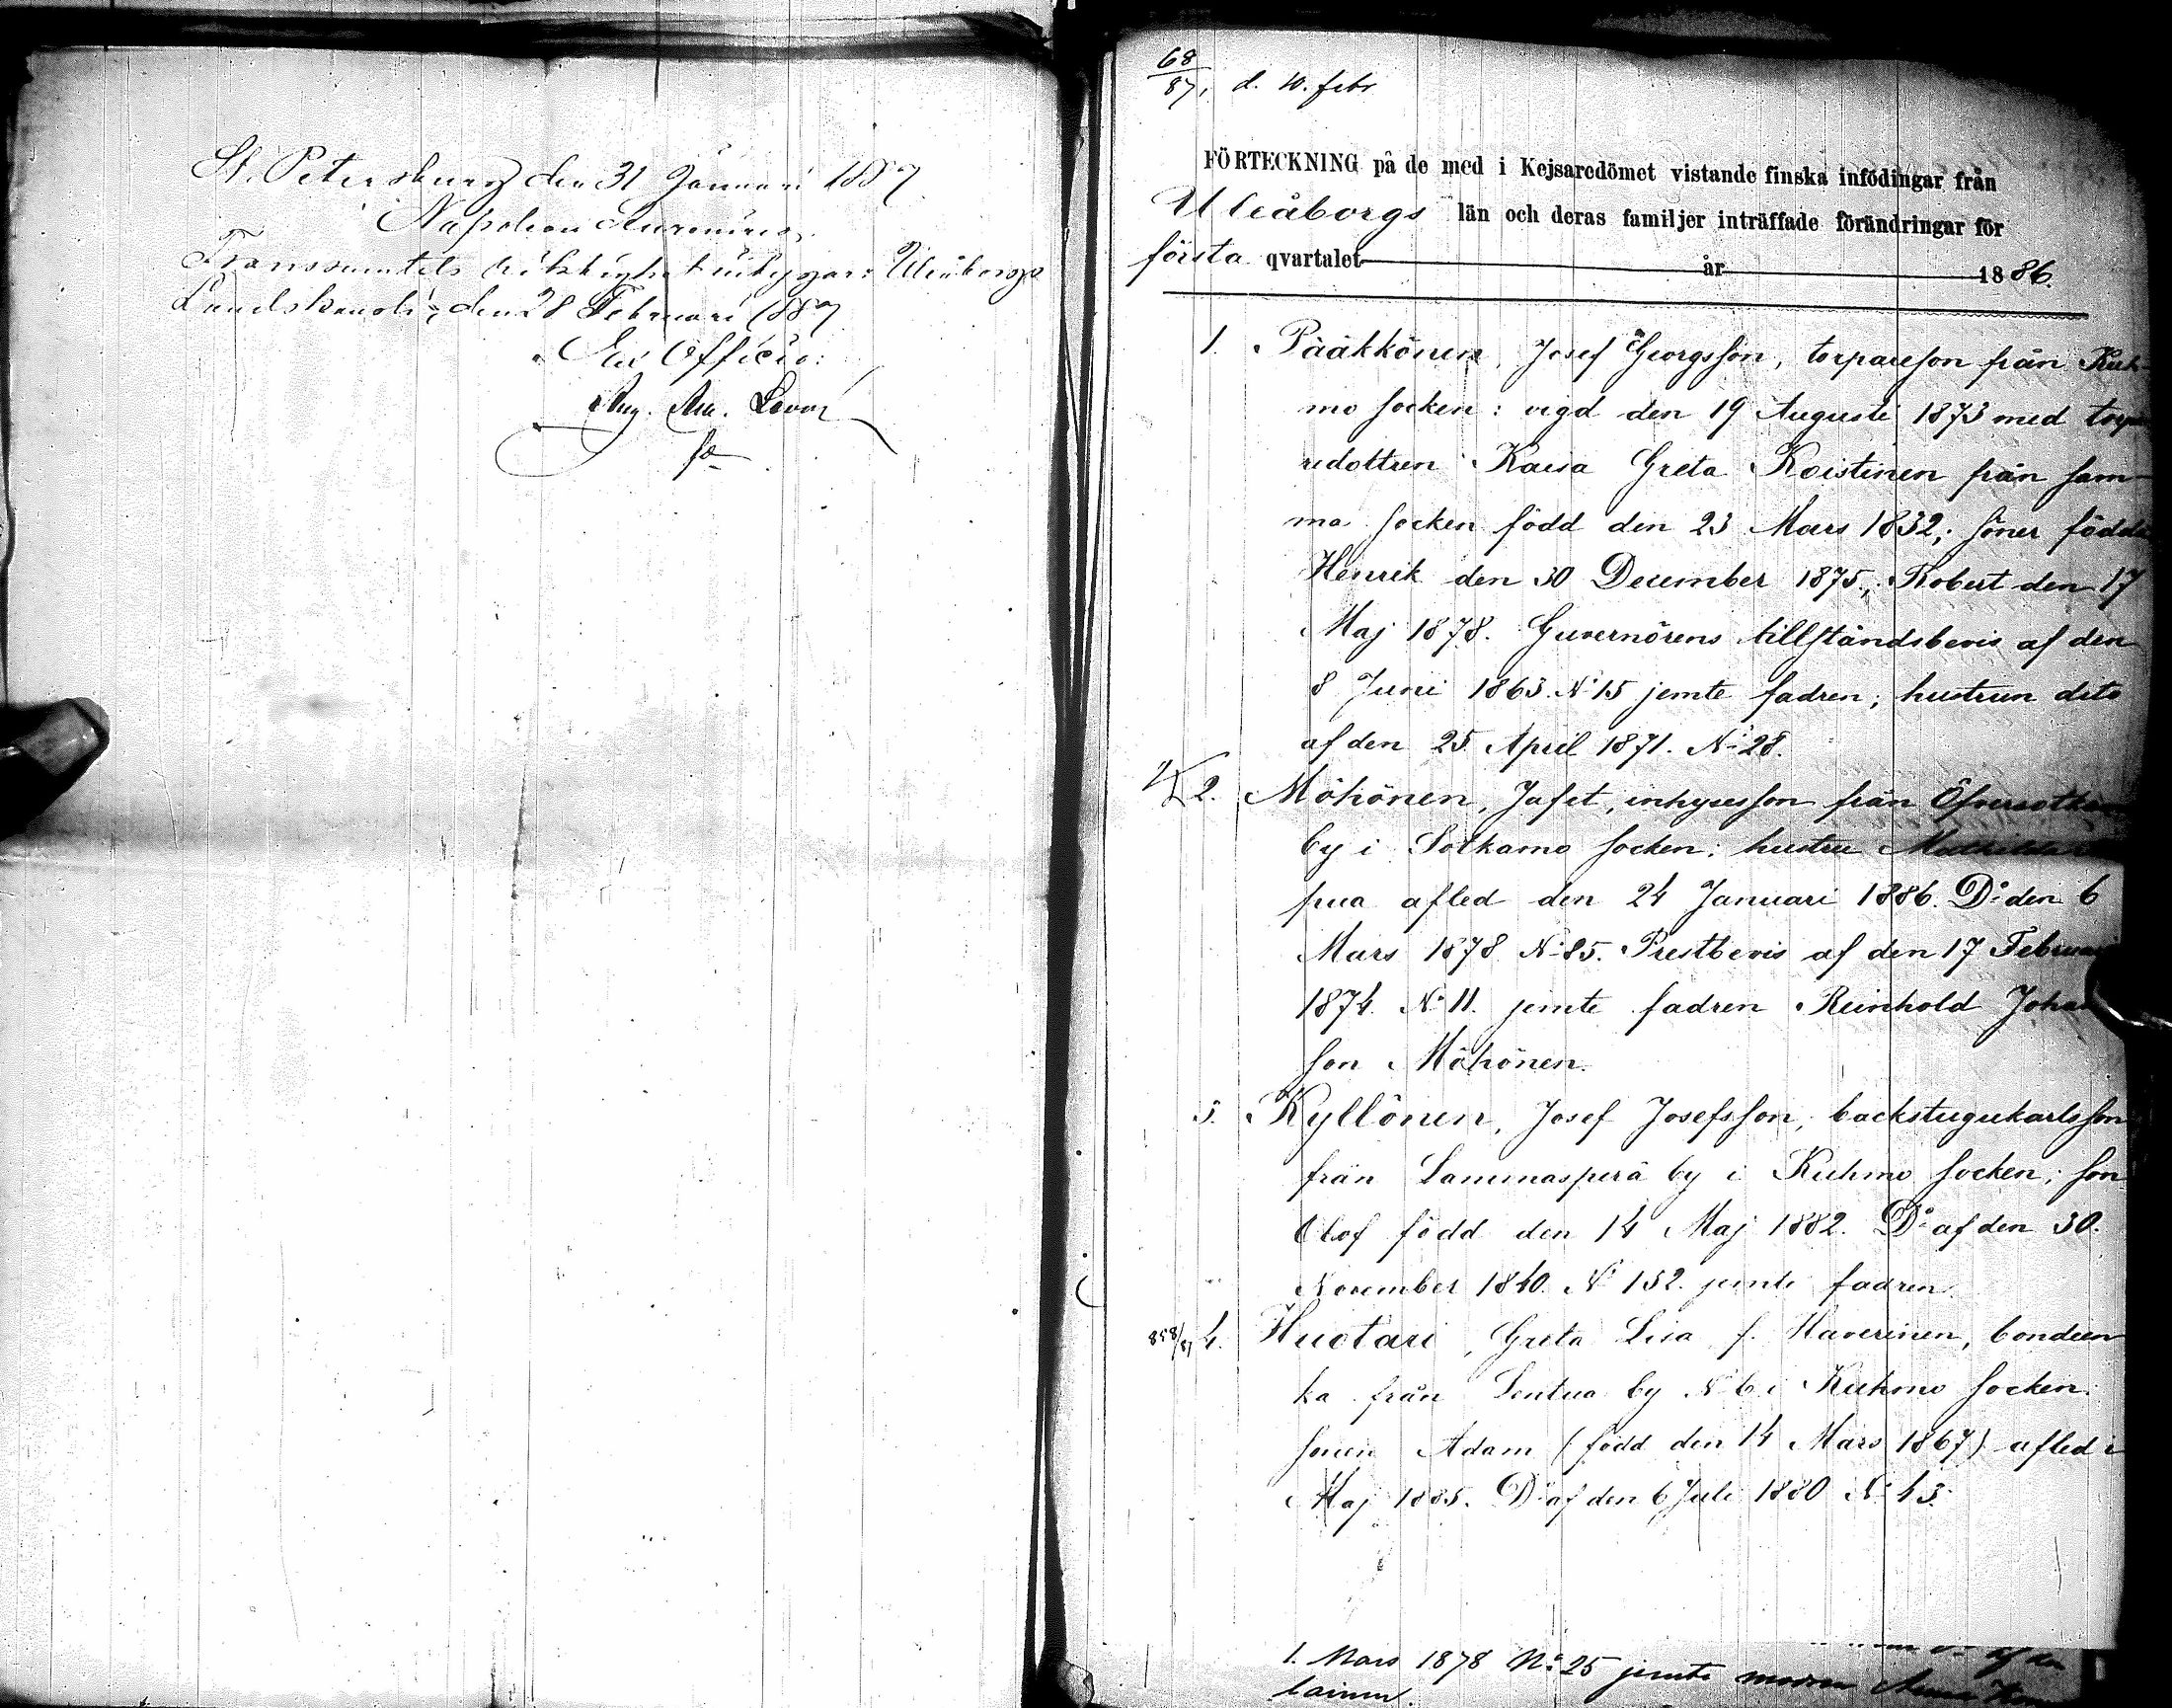 St. Petersburg den 31 Januari 1887
Napoleon
Transsumtets riktighet intygar: Uleåborgs
Landskansli, den 28 Februari 1887
Ex Officio:
68/87, d. 10. febr
FÖRTECKNING på de med i Kejsaredömet vistande finska infödingar från
Uleåborgs län och deras familjer inträffade förändringar för
första qvartalet år 1886.
1. Pääkkönen, Josef Georgsson, torpareson från Kuh-
mo socken: vigd den 19 Augusti 1873 med torpa
redottren Kaisa Greta Koistinen från sam-
ma socken född den 23 Mars 1832; söner födda
Henrik den 30 December 1875, Robert den 17
Maj 1878. Guvernörens tillståndsbevis af den
8 Juni 1863 No 15 jemte fadren; hustrun dito
af den 25 April 1871. No 28.
2. Möhönen, Jafet, inhysesson från
by i Sotkamo socken: hustru
pua afled den 24 Januari 1886. Do den 6
Mars 1878 No 85. Prestbevis af den 17 Februari
1874 No 11. jemte fadren Reinhold Johan
son Möhönen.
3. Kyllönen, Josef Josefsson, backstugukarlsson
från Lammasperä by i Kuhmo socken; son
Olof född den 14 Maj 1882. Do af den 30.
November 1840. No 152. jemte fadren.
858/81 4. Huotari, Greta Lisa f. Haverinen, bondeen
ka från Lentua by No 6 i Kuhmo socken:
sonen Adam (född den 14 Mars 1867) afled i
Maj 1885. Do af den 6 Juli 1880 No 43.
1. Mars 1878 No 25 jemte modren